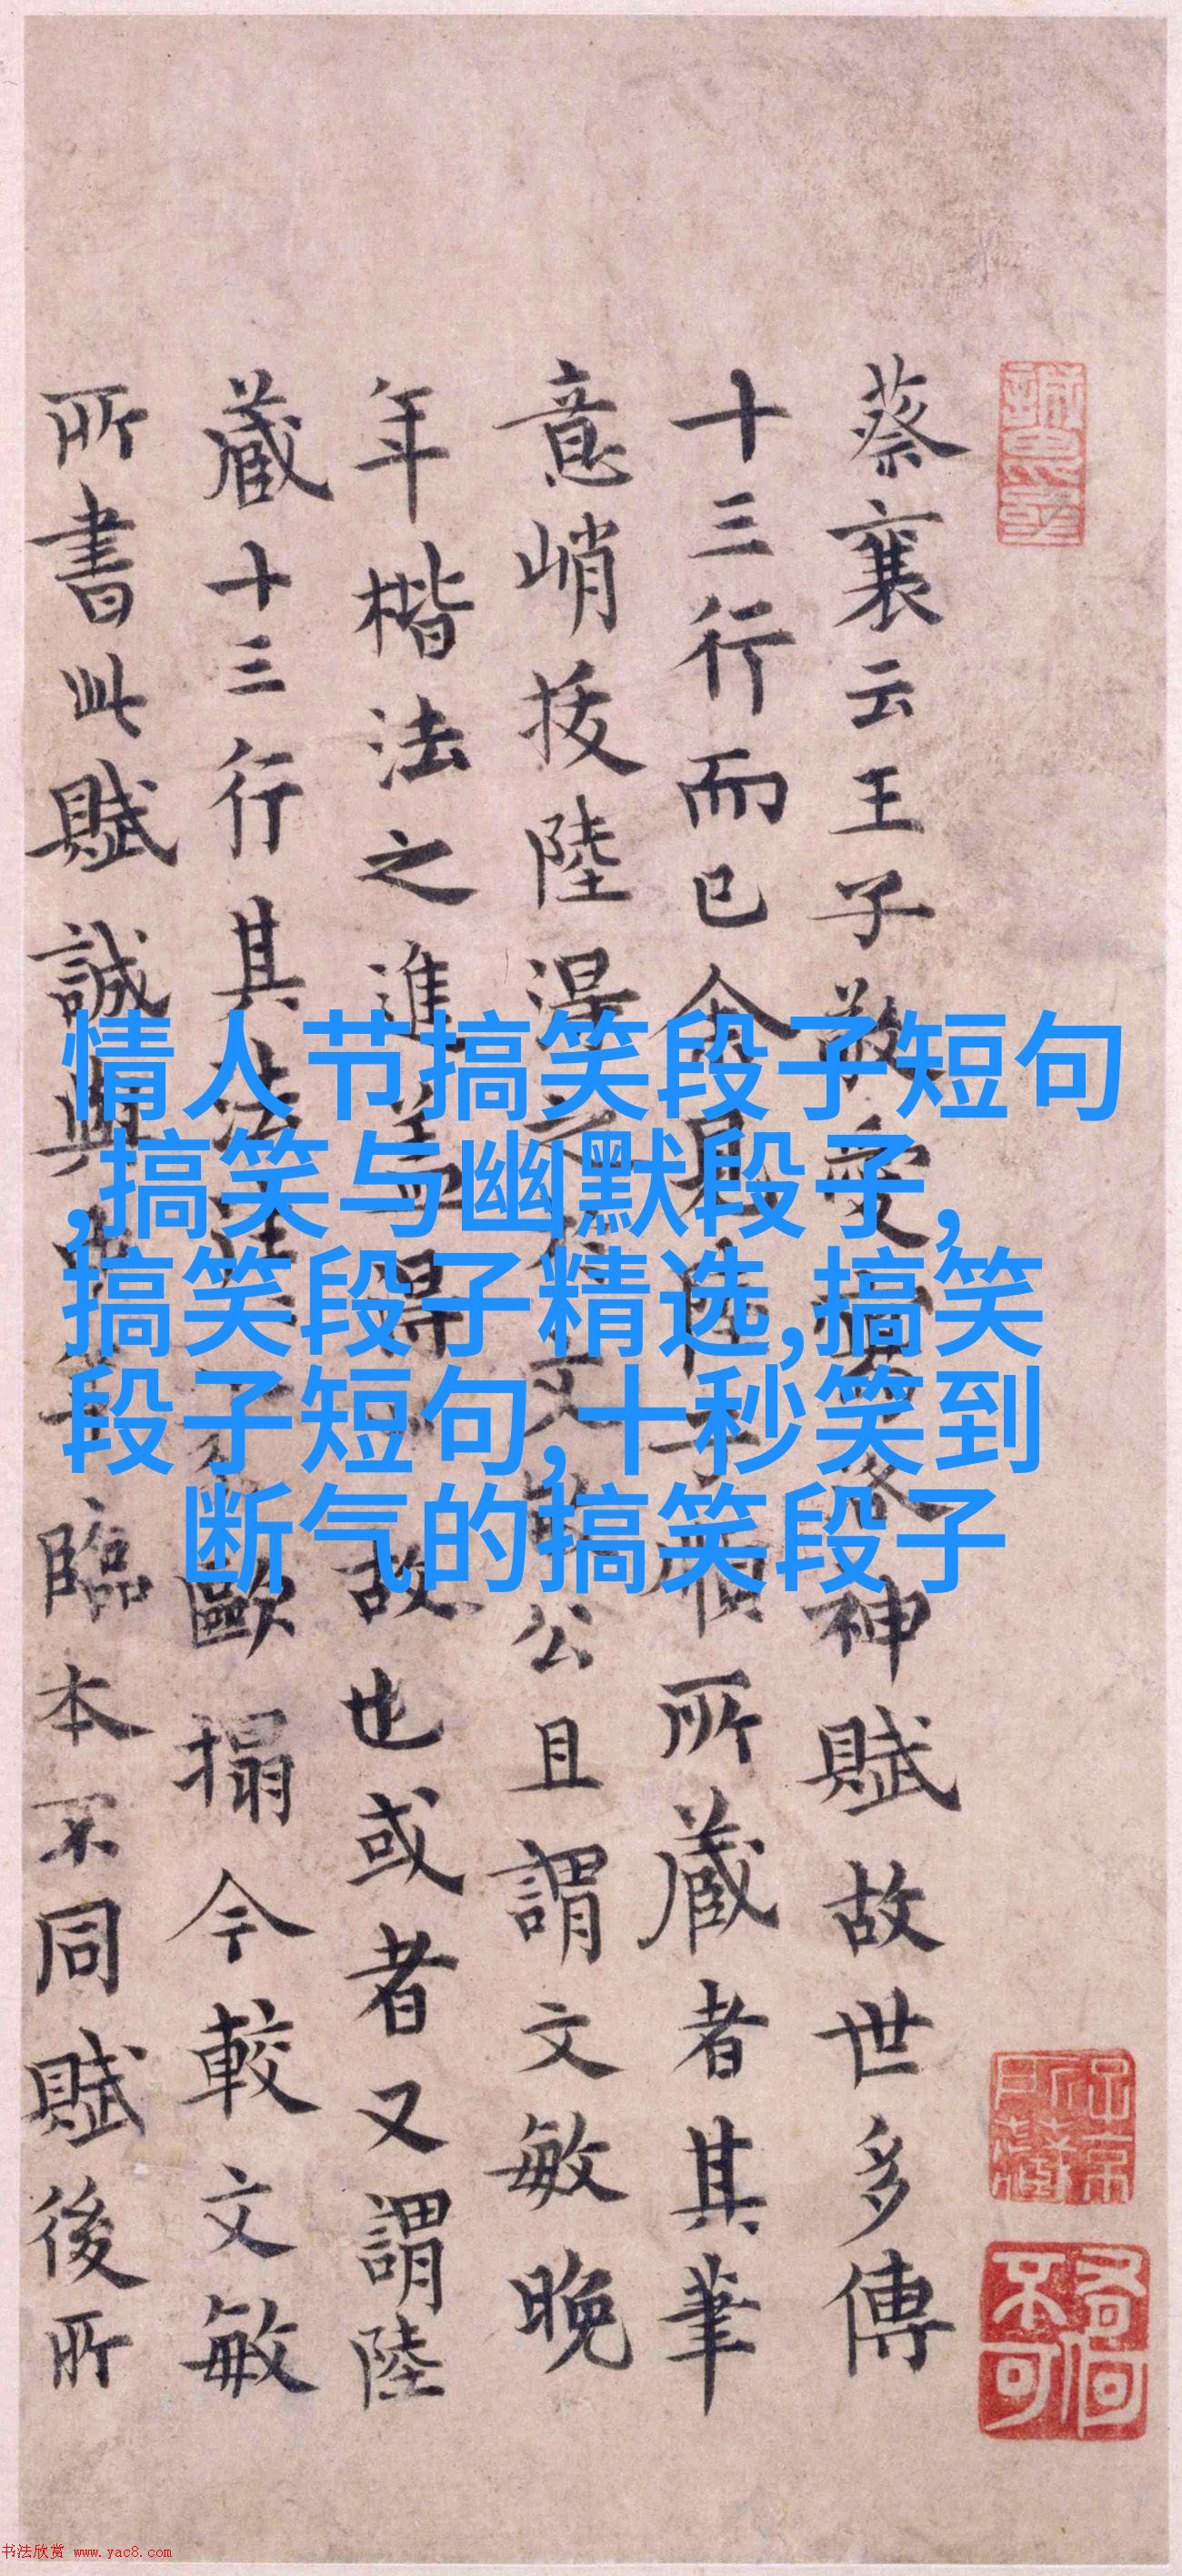 蔡襄云王子敬愛書洛神賦故世多傳
十三行而已余見陳子相所蔵者其筆
意峭拔陸
公且謂文敏晚
年楷法之進益得
故也或者又謂陸
蔵十三行其法
歐搨今較文敏
所書此賦誠與
臨本不同賦後所
情人节搞笑段子短句
,搞笑与幽默段子,
搞笑段子精选,搞笑
段子短句,十秒笑到
断气的搞笑段子
书法欣赏 www.yac8.com